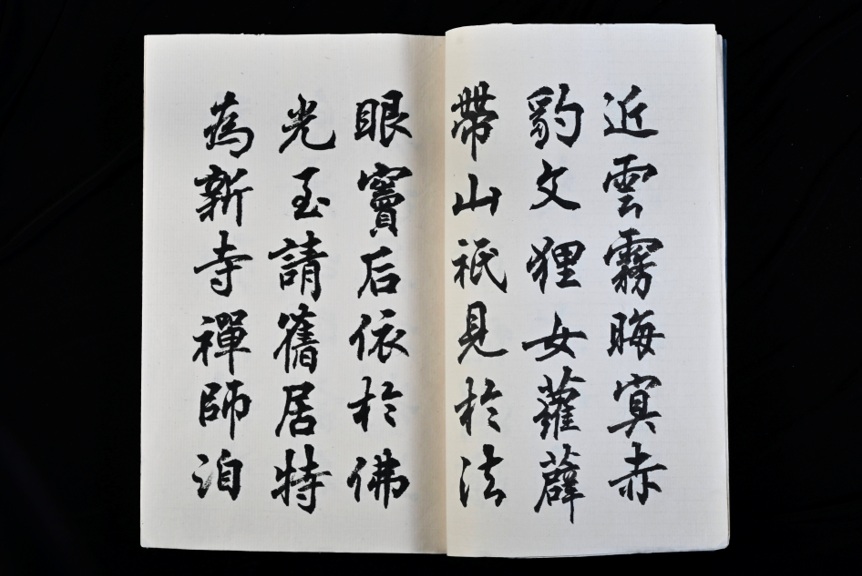 近雲霧晦冥赤
豹文狸女蘿薜
帶山祇見於法
眼竇后依於佛
光至請舊居特
為新寺禪師洎